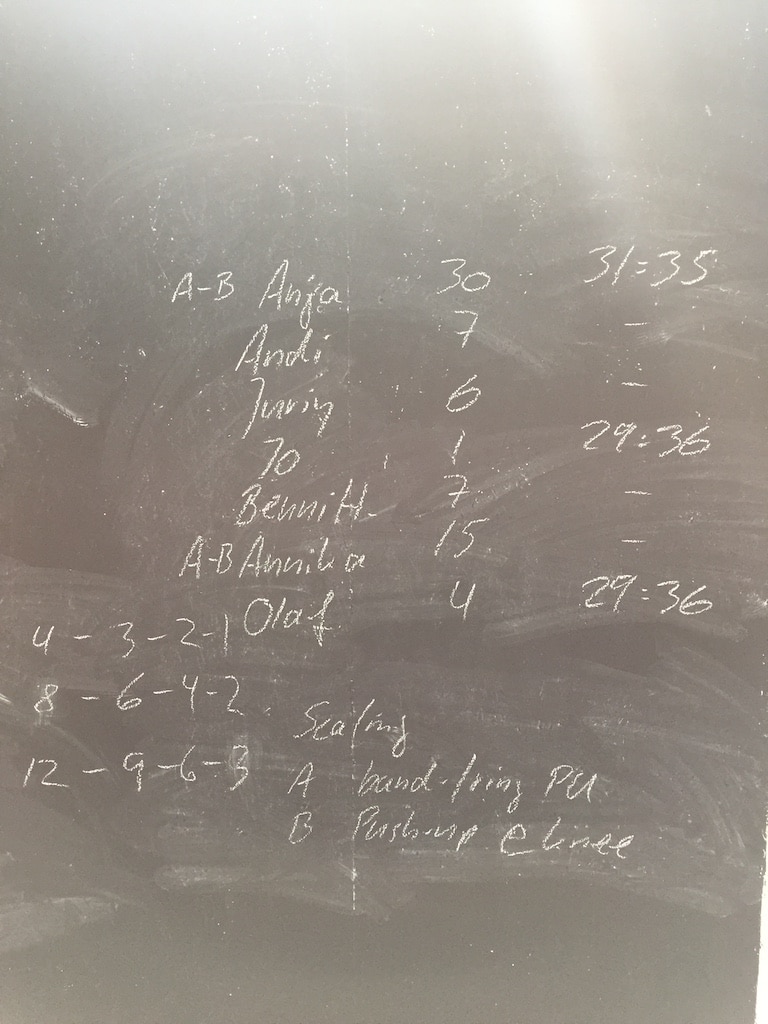 A-B Anja 30 31:35
Andi 7 -
6 -
Jo 1 29:36
7 -
A-B Annika 15 -
Olaf 4 29:36
4 - 3 - 2 - 1
8 - 6 - 4 - 2
12 - 9 - 6 - 3
Scaling
A band-/ring PU
B Push-up